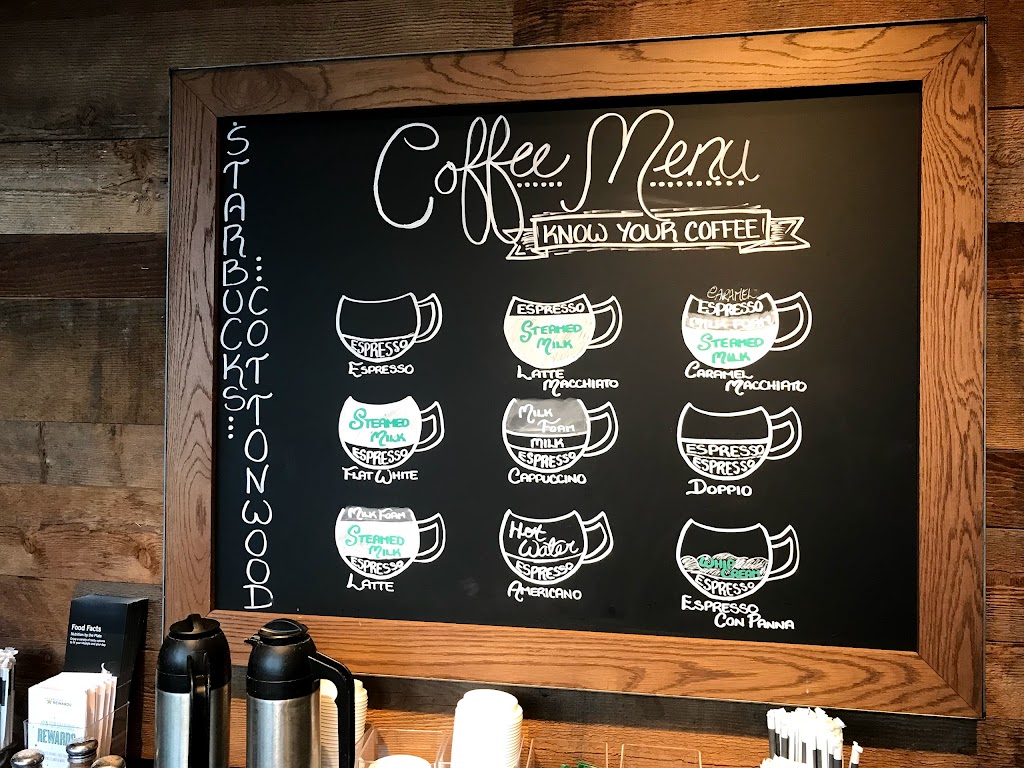 STARBUCKS...
...COTTONWOOD
Coffee Menu
KNOW YOUR COFFEE!
ESPRESSO
ESPRESSO
ESPRESSO
STEAMED
MILK
LATTE
MACCHIATO
CARAMEL
ESPRESSO
MILK FOAM
STEAMED
MILK
CARAMEL
MACCHIATO
STEAMED
MILK
ESPRESSO
FLAT WHITE
MILK
FOAM
MILK
ESPRESSO
CAPPUCCINO
ESPRESSO
ESPRESSO
DOPPIO
MILK FOAM
STEAMED
MILK
ESPRESSO
LATTE
Hot
Water
ESPRESSO
AMERICANO
WHIP
CREAM
ESPRESSO
ESPRESSO
CON PANNA
Food Facts
Nutrition by the Plate
REWARDS